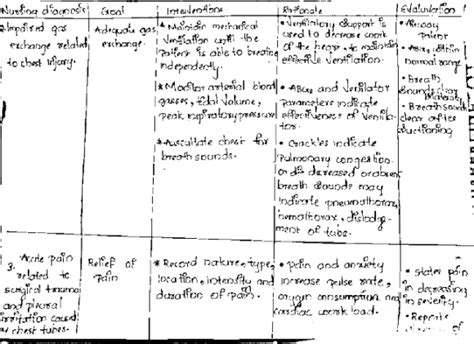 Nursing diagnosis
Goal
Interventions
Rationale
Evaluation
Impaired gas
exchange related
to chest injury.
Adequate gas
exchange.
* Maintain mechanical
Ventilation until the
Patient is able to breathe
independently.
* Monitor arterial blood
gasses, tidal volume,
peak inspiratory pressure
* Auscultate chest for
breath sounds.
• Ventilatory support is
used to decrease work
of the heart, to maintain
effective Ventilation.
• ABGs and Ventilator
Parameters indicate
effectiveness of Ventila-
tor.
• Crackles indicate
Pulmonary congestion.
or dis decreased or absent
breath sounds may
indicate pneumothorax,
hemothorax, dislodg-
ment of tubs.
• Airway
Patent
• ABGs within
normal range
• Breath
Sounds clear
• Breath sounds
clear after
suctioning
3. Acute pain
related to
surgical trauma
and pleural
irritation caused
chest tubes.
Relief of
Pain
* Record nature, type,
location, intensity and
duration of pain.
• Pain and anxiety
increase pulse rate,
oxygen consumption and
cardiac work load.
• States pain
is decreasing
in severity.
• Reports